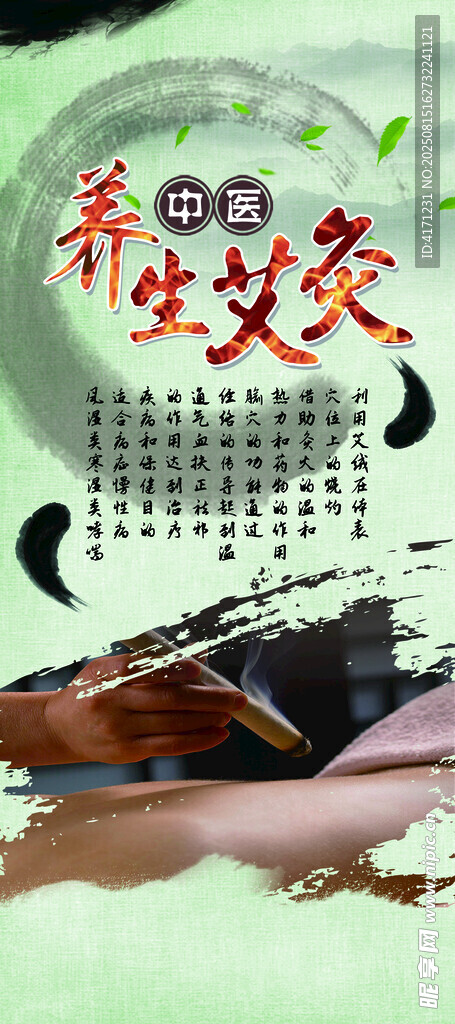 中医
养生艾灸
利用艾绒在体表
穴位上的烧灼
借助灸火的温和
热力和药物的作用
腧穴的功能通过
经络的传导起到温
通气血扶正祛邪
的作用达到治疗
疾病和保健目的
适合病症慢性病
风湿类寒湿类哮喘
ID:4171231 NO:20250815162732241121
昵享网 www.nipic.cn